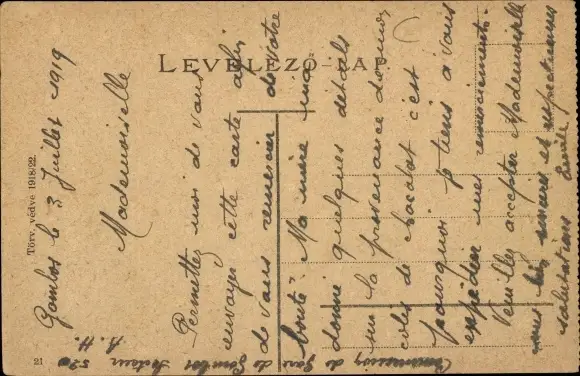 LEVELEZŐ-LAP
Törv. védve 1918/22.
21
Gombos le 3 Juillet 1919
Mademoiselle
Permettez moi de vous
envoyer cette carte afin
de vous remercier de votre
bonté. Ma mère m'a
donné quelques détails
sur la provenance du
colis de chocolat c'est
pourquoi je tiens à vous
expédier mes remerciements.
Veuillez accepter Mademoiselle
mes bien sincères et respectueuses
salutations
A. H.
Commission de Gare de Gombos Secteur 510